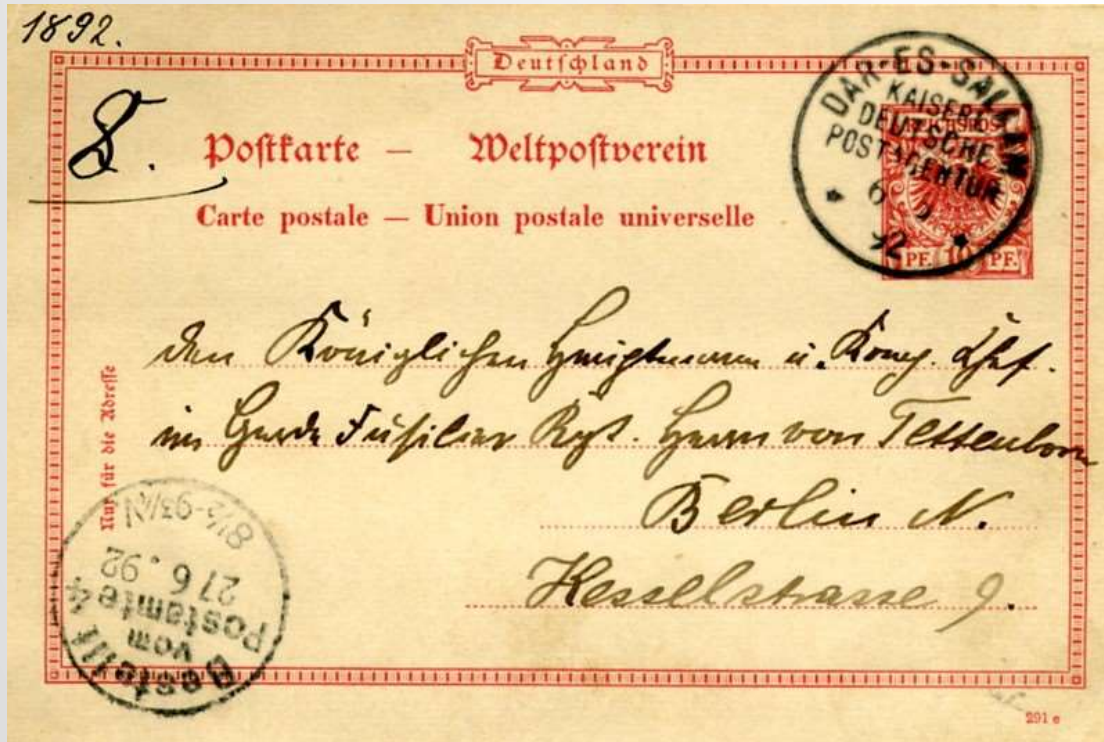 1892.
Deutschland
8.
Postkarte — Weltpostverein
Carte postale — Union postale universelle
DAR-ES-SALAAM
KAISERL.
DEUTSCHE
POSTAGENTUR
6
92
REICHSPOST
PF. 10 PF.
den Königlichen Hauptmann u. Komp. Chef.
im Garde Füsilier Rgt. Herrn von Tettenborn
Berlin N.
Kesselstrasse 9.
Nur für die Adresse
Bestellt
vom
Postamte 4
27 6. 92
8½-93/4N
291 e